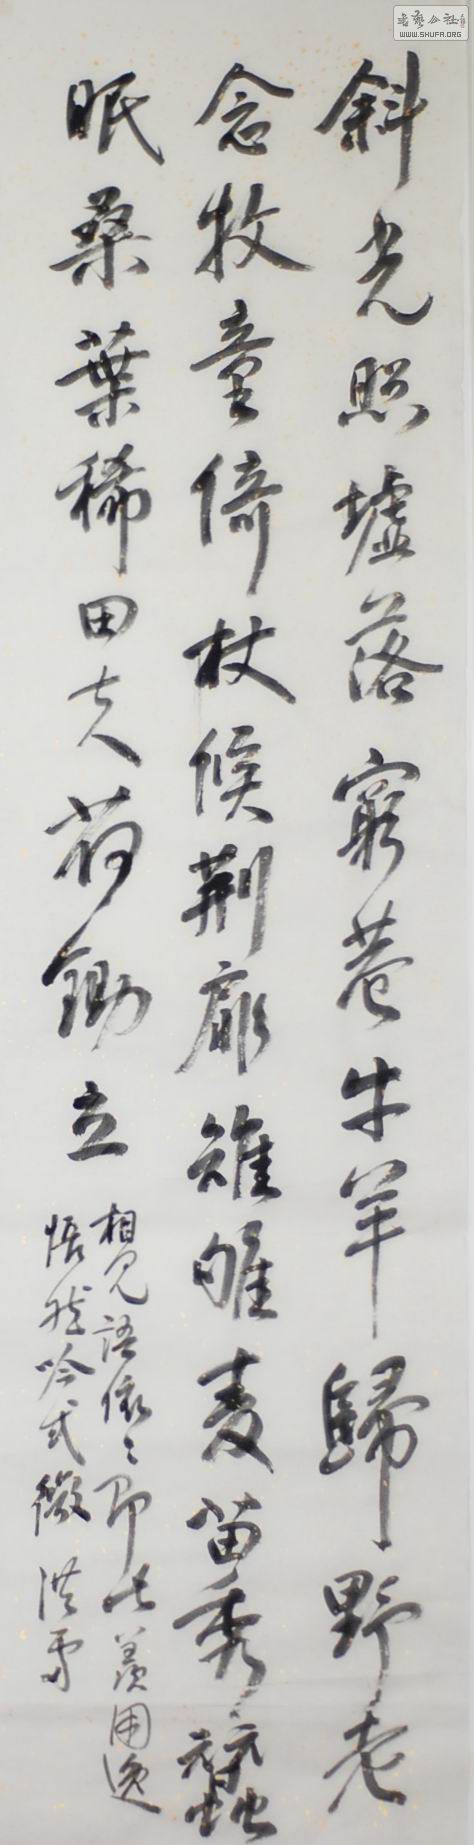 斜光照墟落窮巷牛羊歸野老
念牧童倚杖候荊扉雉雊麦苗秀蠶
眠桑葉稀田夫荷鋤立
相見語依〻即此羨闲逸
悵然吟式微
书艺公社
WWW.SHUFA.ORG